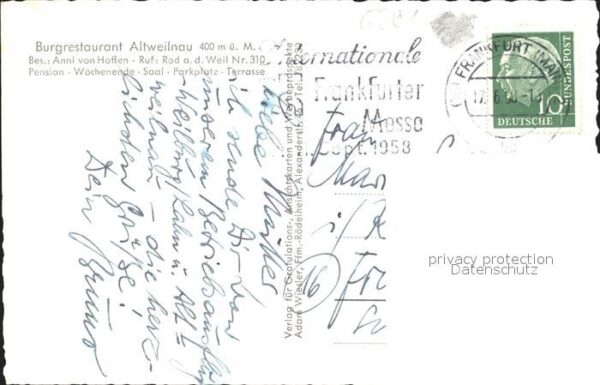 Burgrestaurant Altweilnau 400 m ü. M.
Bes.: Anni von Hoffen - Ruf: Rod a. d. Weil Nr. 310
Pension - Wochenende - Saal - Parkplatz - Terrasse
Internationale
Frankfurter
Messe
Sept. 1958
FRANKFURT (MAIN
17. 6. 58
10
DEUTSCHE
BUNDESPOST
Verlag für Gratulations-, Ansichtskarten und Werbeprospekte
Adam Wiesler, Ffm.-Rödelheim, Alexanderstraße
Liebe Mutter
ich sende Dir von
unserem Betriebsausflug
Weilburg/Lahn u. Alt-
weilnau - die herz-
lichsten Grüße!
Dein Bruno
Frau
Mar
16
privacy protection
Datenschutz